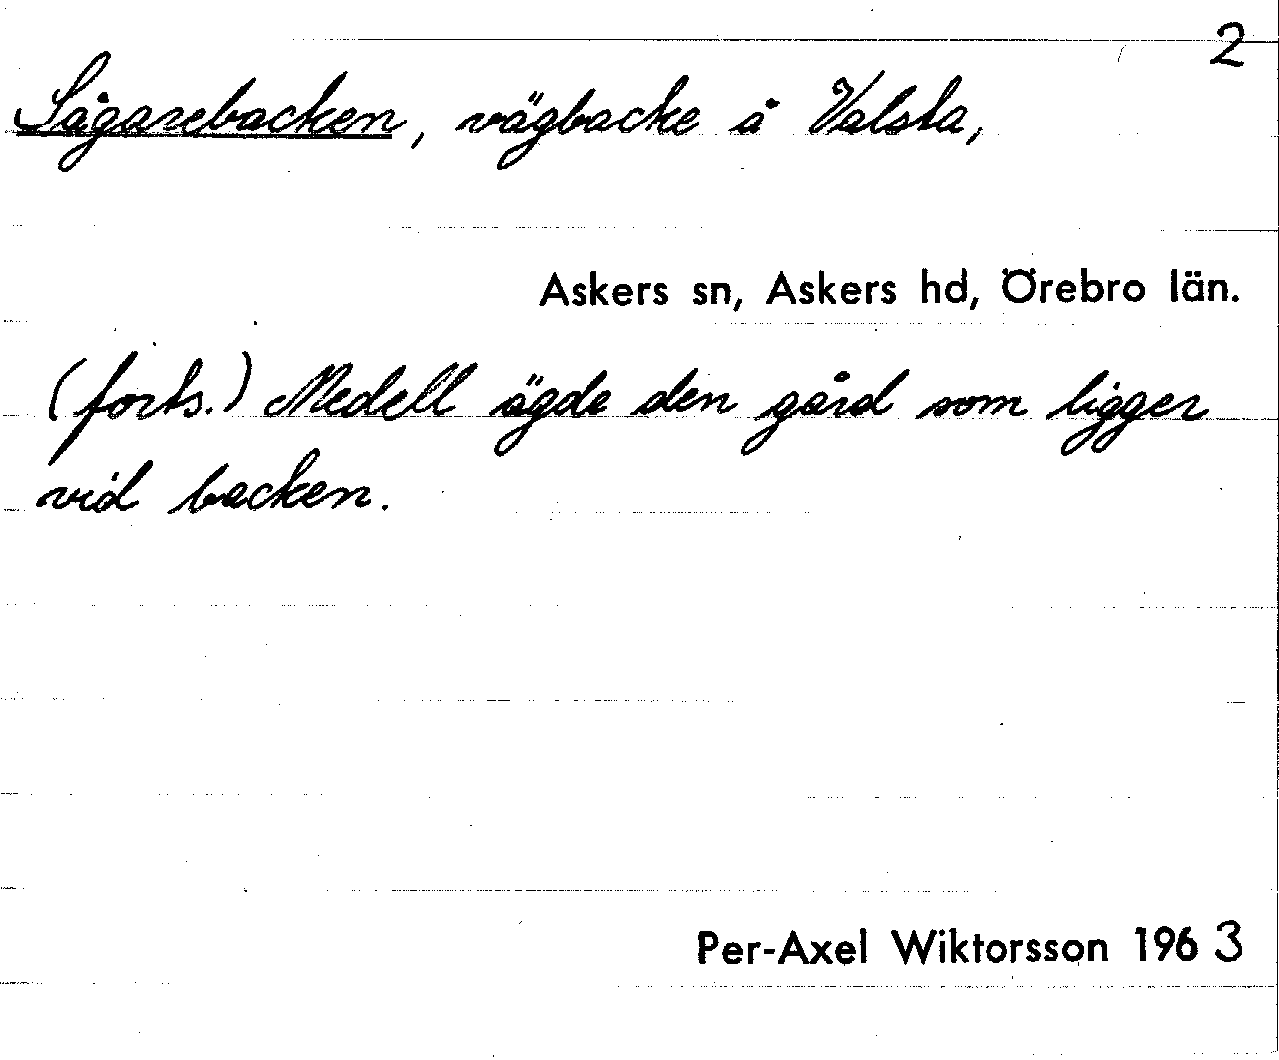 2
Sågarebacken, vägbacke å Valsta,
Askers sn, Askers hd, Örebro län.
(forts.) Medell ägde den gård som ligger
vid backen.
Per-Axel Wiktorsson 1963